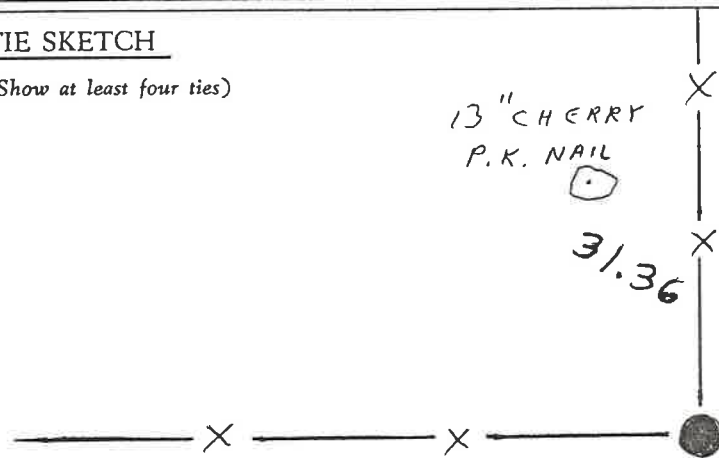 TIE SKETCH
(Show at least four ties)
13" CHERRY
P.K. NAIL
31.36